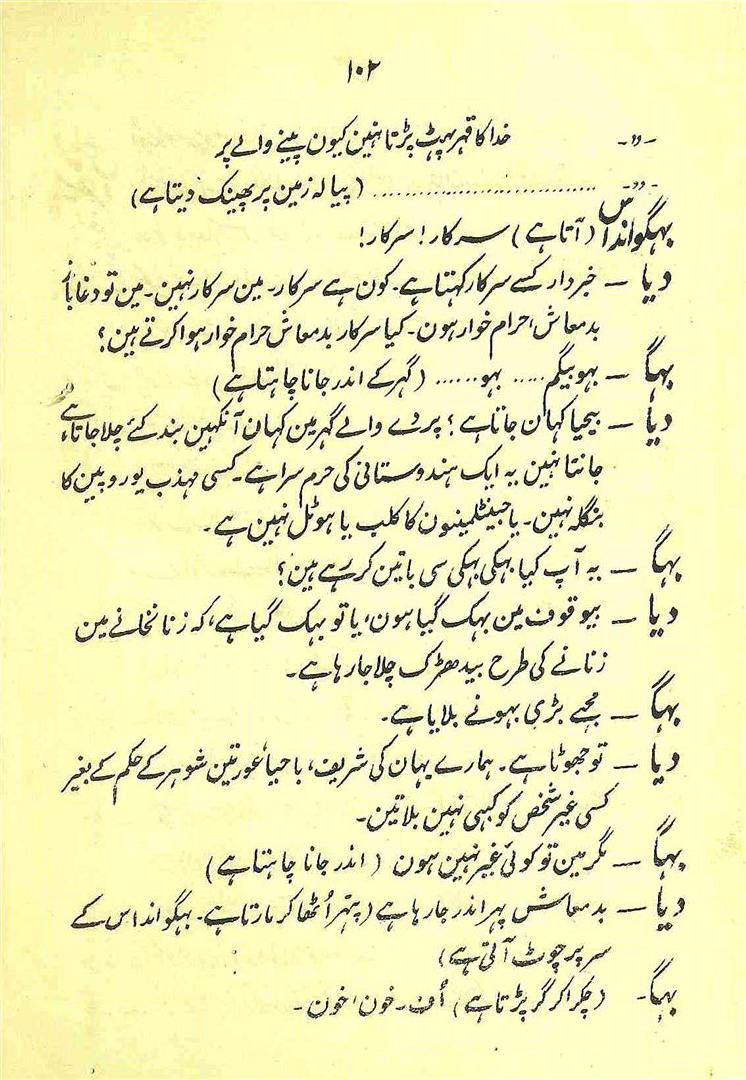 ۱۰۲
-رر- خدا کا قہر پہٹ پڑتا نہین کیون پینے والے پر
-رر- .............................. (پیالہ زمین پر پھینک دیتا ہے)
بہگوانداس (آتا ہے) سرکار! سرکار!
دیا — خبردار کسے سرکار کہتا ہے۔ کون ہے سرکار۔ مین سرکار نہین۔ مین تو دغاباز
بدمعاش، حرام خوار ہون۔ کیا سرکار بدمعاش حرام خوار ہوا کرتے ہین؟
بہگا — بہو بیگم ..... بہو...... (گہر کے اندر جانا چاہتا ہے)
دیا — بیحیا کہان جاتا ہے؟ پردے والے گہر مین کہان آنکہین بند کئے چلا جاتا ہے،
جانتا نہین یہ ایک ہندوستانی کی حرم سرا ہے۔ کسی مہذب یوروپین کا
بنگلہ نہین۔ یا جینٹلمینون کا کلب یا ہوٹل نہین ہے۔
بہگا — یہ آپ کیا بہکی بہکی سی باتین کر رہے ہین؟
دیا — بیوقوف مین بہک گیا ہون، یا تو بہک گیا ہے، کہ زنانخانے مین
زنانے کی طرح بیدھڑک چلا جا رہا ہے۔
بہگا — مجہے بڑی بہو نے بلایا ہے۔
دیا — تو جھوٹا ہے۔ ہمارے یہان کی شریف، باحیا عورتین شوہر کے حکم کے بغیر
کسی غیر شخص کو کبہی نہین بلاتین۔
بہگا — مگر مین تو کوئی غیر نہین ہون (اندر جانا چاہتا ہے)
دیا — بدمعاش پہر اندر جا رہا ہے (پتہر اُٹھا کر مارتا ہے۔ بہگوانداس کے
سر پر چوٹ آتی ہے)
بہگا۔ (چکرا کر گر پڑتا ہے) اُف۔ خون، خون۔